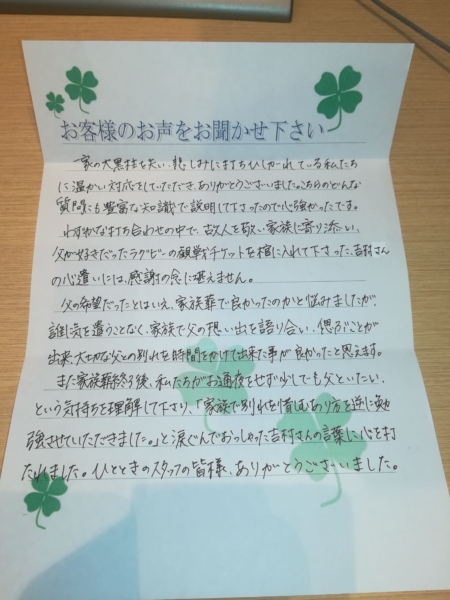 お客様のお声をお聞かせ下さい
一家の大黒柱を失い、悲しみに打ちひしがれている私たち
に温かい対応をしていただき、ありがとうございました。こちらのどんな
質問にも豊富な知識で説明して下さったので心強かったです。
わずかな打ち合わせの中で、故人を敬い家族に寄り添い、
父が好きだったラグビーの観戦チケットを棺に入れて下さった、吉村さん
の心遣いには、感謝の念に堪えません。
父の希望だったとはいえ、家族葬で良かったのかと悩みましたが、
誰に気を遣うことなく、家族で父の想い出を語り合い、偲ぶことが
出来、大切な父との別れを時間をかけて出来た事が良かったと思えます。
また家族葬終了後、私たちがお通夜をせず少しでも父といたい、
という気持ちを理解して下さり、「家族で別れを惜しむあり方を逆に勉
強させていただきました。」と涙ぐんでおっしゃった吉村さんの言葉に心を打
たれました。ひとときのスタッフの皆様、ありがとうございました。